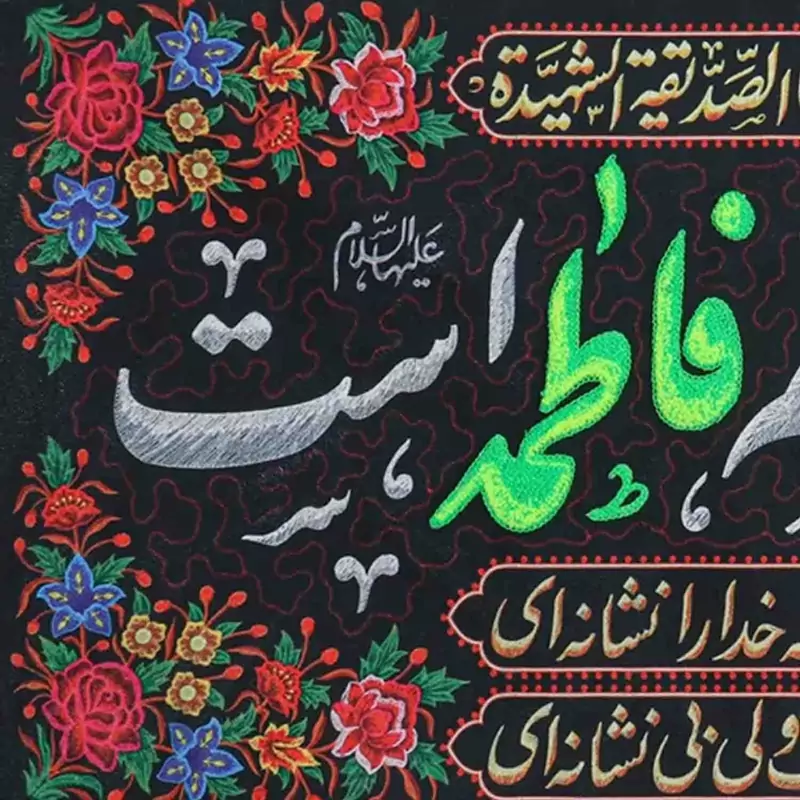 الصِّدّيقة الشهيَّدة
فاطمه است
عليهاالسّلام
خدا را نشانه ای
ولی بی نشانه ای